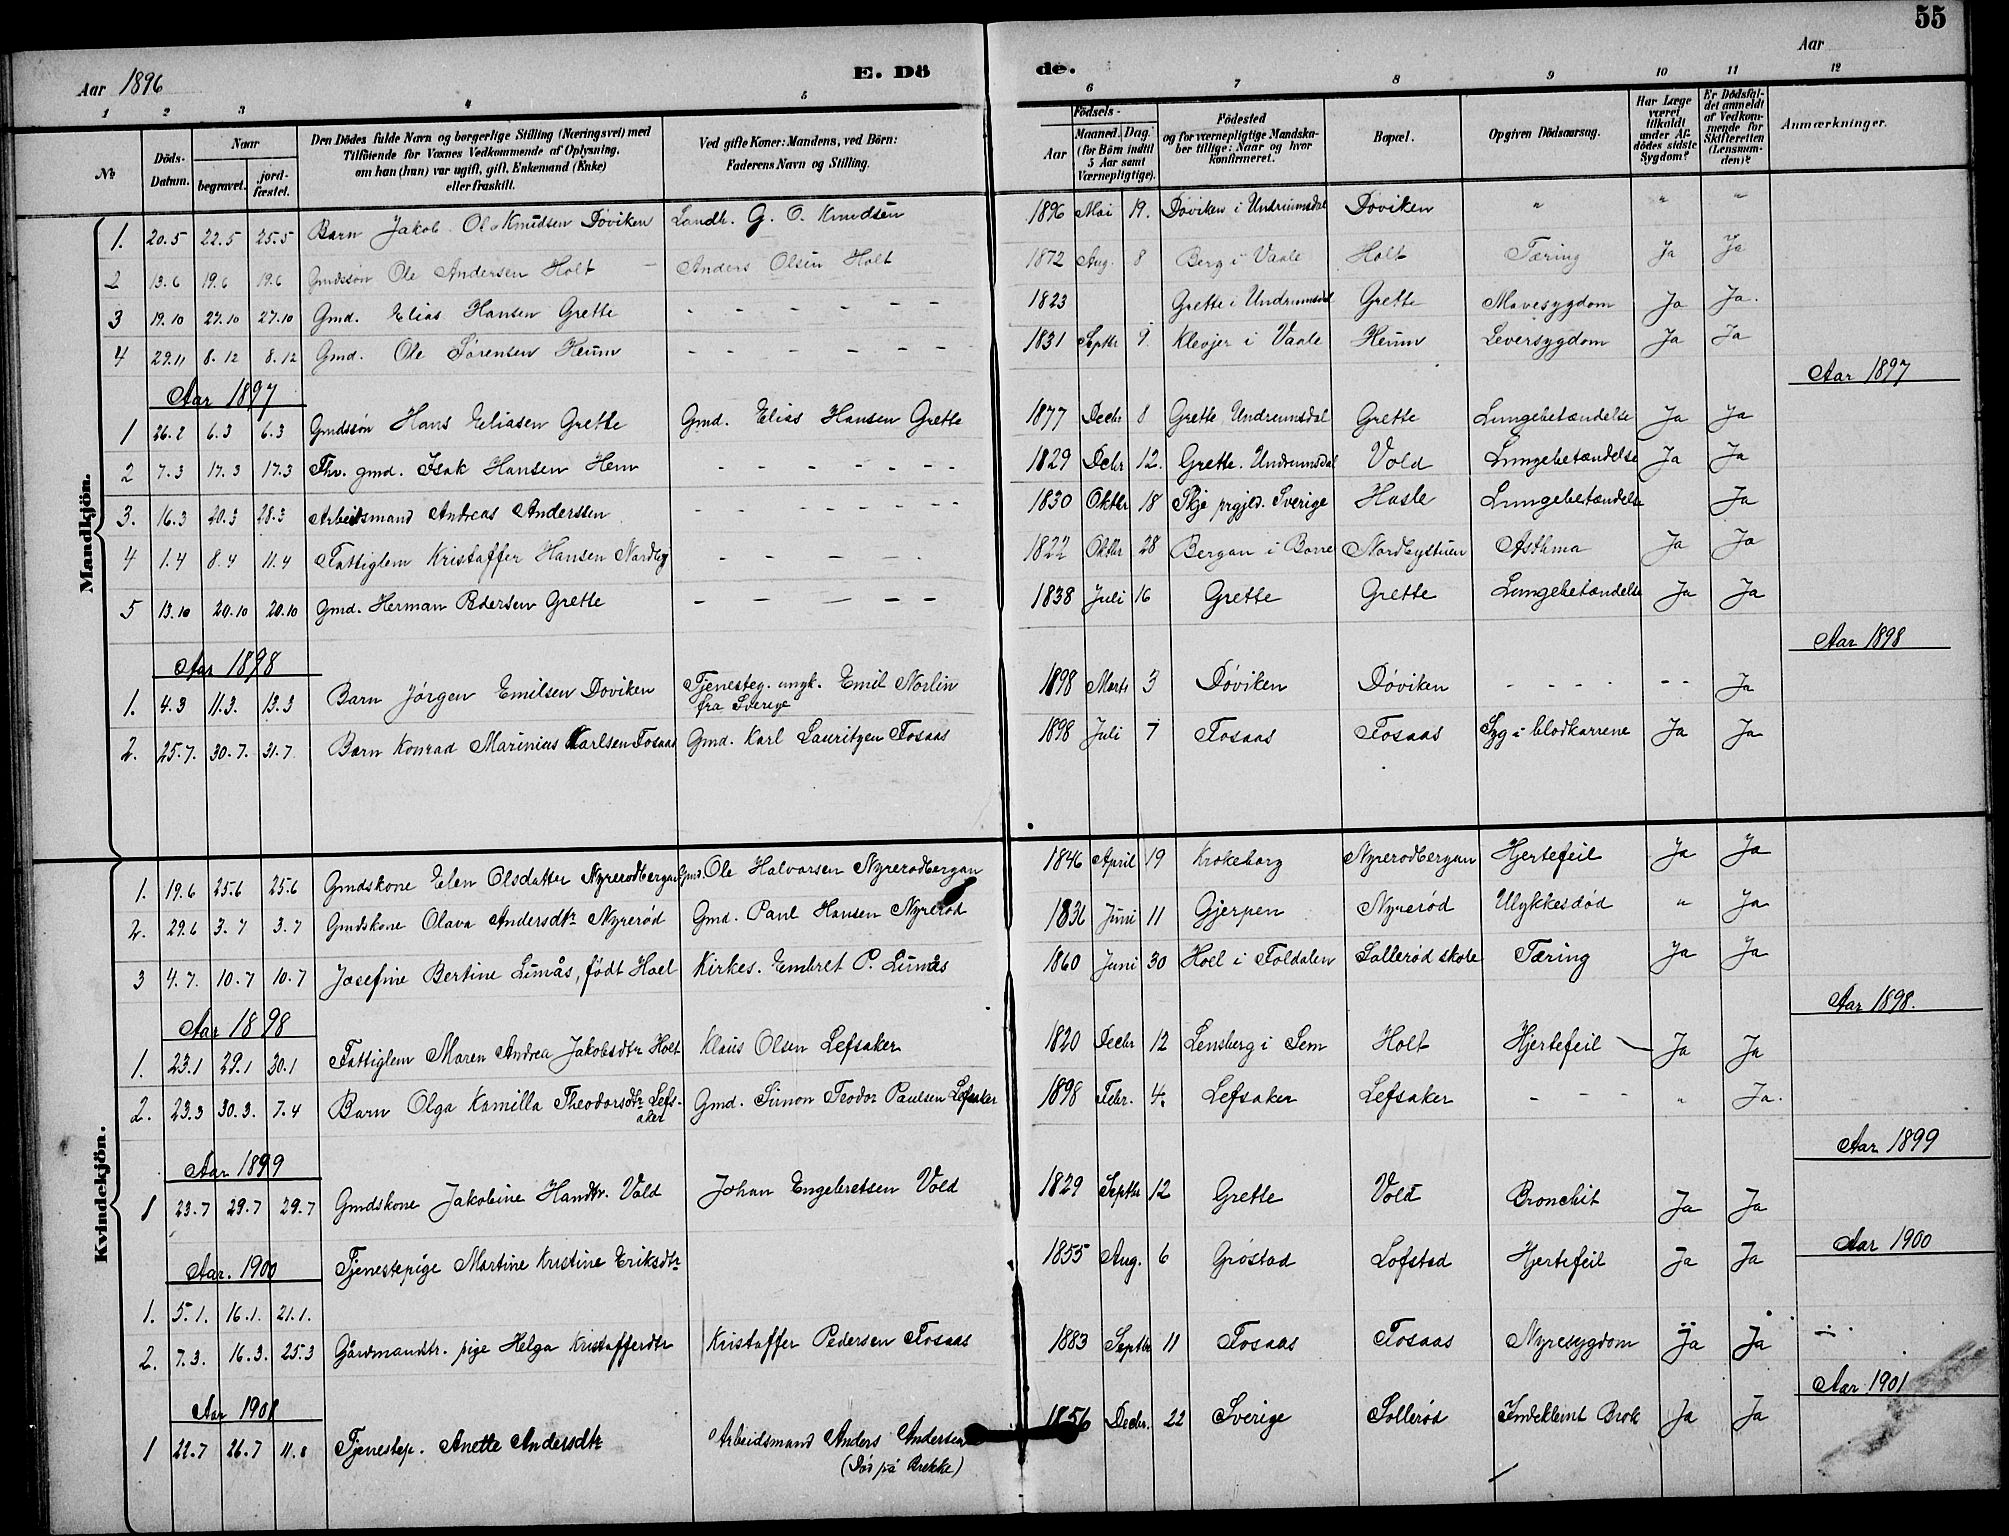 55
Aar 1896
E. Dö
de.
Aar
1 2 3 4 5 6 7 8 9 10 11 12
No
Döds-Datum.
Naar
begravet.
jord-fæstet.
Den Dödes fulde Navn og borgerlige Stilling (Næringsvei) med
Tilföiende for Voxnes Vedkommende af Oplysning,
om han (hun) var ugift, gift, Enkemand (Enke)
eller fraskilt.
Ved gifte Koner: Mandens, ved Börn:
Faderens Navn og Stilling.
Födsels-
Aar
Maaned. Dag.
(for Börn indtil
5 Aar samt
Værnepligtige).
Födested
og for værnepligtige Mandska-
ber tillige: Naar og hvor
Konfirmeret.
Bopæl.
Opgiven Dödsaarsag.
Har Læge
været
tilkaldt
under Af-
dödes sidste
Sygdom?
Er Dödsfal-
det anmeldt
af Vedkom-
mende for
Skifteretten
(Lensman-
den)?
Anmærkninger.
Mandkjön.
1. 20.5 22.5 25.5 Barn Jakob Ol. Knudsen Døviken Landh. G. O. Knudsen 1896 Mai 19. Døviken i Undrumsdal Døviken " " "
2 13.6 19.6 19.6 Gmdssøn Ole Andersen Holt Anders Olsen Holt 1872 Aug. 8 Berg i Vaale Holt Tæring Ja Ja
3 19.10 27.10 27.10 Gmd. Elias Hansen Grette - - - - - - 1823 Grette i Undrumsdal Grette Mavesygdom Ja Ja.
4 29.11 8.12 8.12 Gmd. Ole Sørensen Heum - - - - - - 1831 Septbr 9. Klevjer i Vaale Heum Leversygdom Ja Ja
Aar 1897
Aar 1897
1 26.2 6.3 6.3 Gmdssøn Hans Eliasen Grette Gmd. Elias Hansen Grette 1877 Decbr 8 Grette, Undrumsdal Grette Lungebetændelse Ja Ja
2 7.3 17.3 17.3 Fhv. gmd. Isak Hansen Hem - - - - - - - 1829 Decbr 12. Grette. Undrumsdal Vold Lungebetændelse Ja Ja
3. 16.3 20.3 28.3 Arbeidsmand Andreas Anderssen - - - - - - - 1830 Oktbr 18 Skje prgjld. Sverige Hasle Lungebetændelse Ja
4 1.4 8.4 11.4 Fattiglem Kristoffer Hansen Nordby - - - - 1822 Oktbr 28 Bergan i Borre Nordbystuen Asthma Ja Ja
5 13.10 20.10 20.10 Gmd. Herman Pedersen Grette - - - - - 1838 Juli 16 Grette Grette Lungebetændelse Ja Ja
Aar 1898
Aar 1898
1. 4.3 11.3. 13.3 Barn Jørgen Emilsen Døviken Tjenesteg. ungk. Emil Norlin
fra Sverige 1898 Marts 3 Døviken Døviken - - - - - - Ja
2. 25.7. 30.7. 31.7 Barn Konrad Marinius Karlsen Fosaas Gmd. Karl Lauritzen Fosaas 1898 Juli 7 Fosaas Fosaas Syg i blodkarrene Ja Ja
Kvindekjön.
1. 19.6 25.6 25.6 Gmdskone Elen Olsdatter Nyrerødbergan Gmd. Ole Halvorsen Nyrerodbergan 1846 April 19 Krokeborg Nyrerodbergan Hjertefeil Ja Ja
2. 29.6 3.7 3.7 Gmdskone Olava Andersdtr Nyrerød Gmd. Paul Hansen Nyrerød 1836 Juni 11 Gjerpen Nyrerød Ulykkesdød " Ja
3 4.7. 10.7 10.7 Josefine Bertine Limås, født Hoel Kirkes. Embret P. Limås 1860 Juni 30 Hoel i Foldalen Sollerød skole Tæring Ja Ja
Aar 1898
Aar 1898.
1. 23.1 29.1 30.1 Fattiglem Maren Andrea Jakobsdtr Holt Klaus Olsen Lefsaker 1820 Decbr 12 Lensberg i Sem Holt Hjertefeil Ja Ja
2. 23.3 30.3. 7.4 Barn Olga Kamilla Theodorsdtr Lefs-
aker Gmd. Simon Teodor Paulsen Lefsaker 1898 Febr. 4. Lefsaker Lefsaker - - - " Ja.
Aar 1899
Aar 1899
1 23.7 29.7 29.7 Gmdskone Jakobine Handtr. Vold Johan Engebretsen Vold 1829 Septbr 12 Grette Vold Bronchit Ja Ja
Aar. 1900
Aar 1900
Tjenestepige Martine Kristine Eriksdtr 1855 Aug. 6 Grøstad Lofstad Hjertefeil Ja Ja
1. 5.1. 16.1. 21.1.
2. 7.3. 16.3. 25.3 Gårdmandsdtr. pige Helga Kristofferdtr Kristoffer Pedersen Fosaas 1883 Septbr 11 Fosaas Fosaas Nyresygdom Ja Ja
Aar 1901
Aar 1901
1 22.7 26.7 11.8 Tjenestep. Anette Andersdtr Arbeidsmand Anders Andersen
(Død på Brekke) 1856 Decbr. 22 Sverige Sollerød Indeklemt Brok Ja Ja